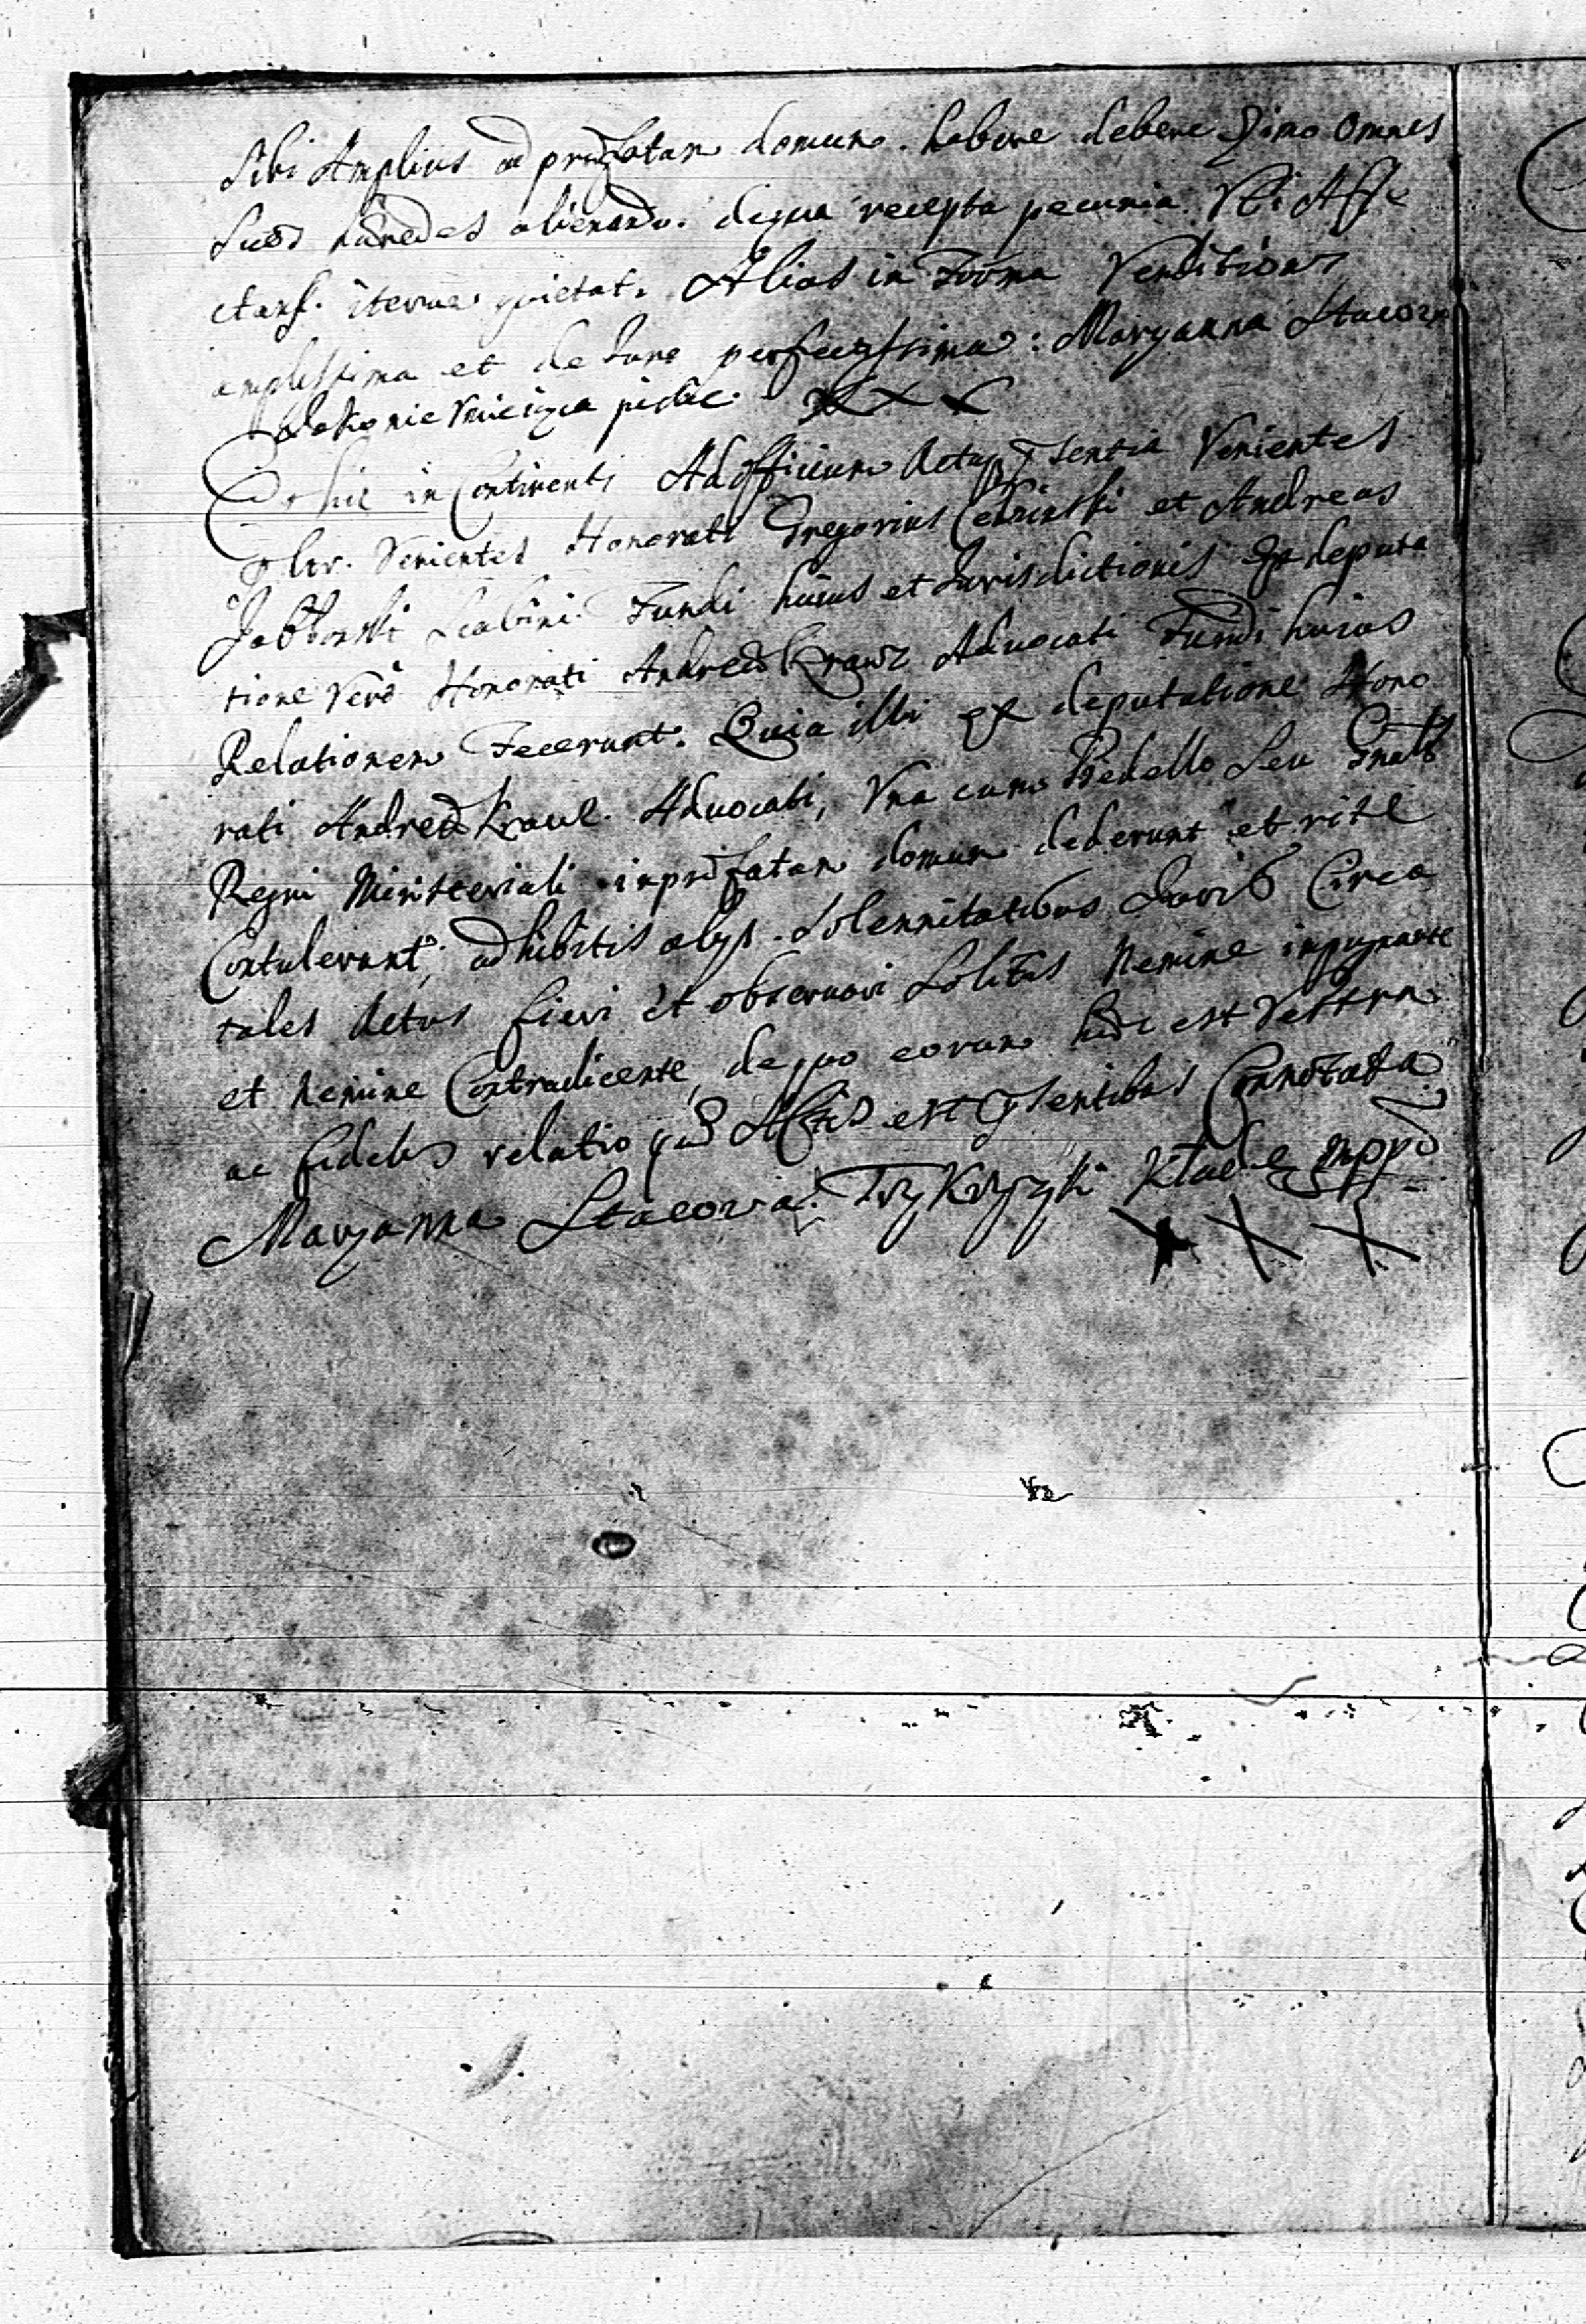 Sibi Amplius ad præfatam domum habere debere imo omnes
suos hæredes alienando. deque recepta pecunia
quietat. Alias in Forma Venditionis
amplissima et de Jure perfectissima: Maryanna Stacorz
nie Umieiąca pisac. XXX
in Continenti Ad officium Actaq3 psentia Venientes
plr. Venientes Honorati Gregorius et Andreas
Scabini Fundi huius et Jurisdictionis Ex deputa
tione Verò Honorati Andreæ Krawc Advocati Fundi huius
Relationem Fecerunt. Quia illi ex deputatione Hono
rati Andreæ Krawc. Advocati, Una cum Bedello Seu Gnali
Regni Ministeriali in præfatam domum dederunt et rite
Contulerunt, adhibitis alijs. Solennitatibus Juris Circa
tales Actus fieri et observari Solitis Nemine impugnante
et nemine Contradicente, de quo eorum hæc est Vestra
ac fidelis relatio quæ Actis est psentibus Connotata
Maryanna Stacorza Trzy Krzyzyki Kładę mpp
XXX